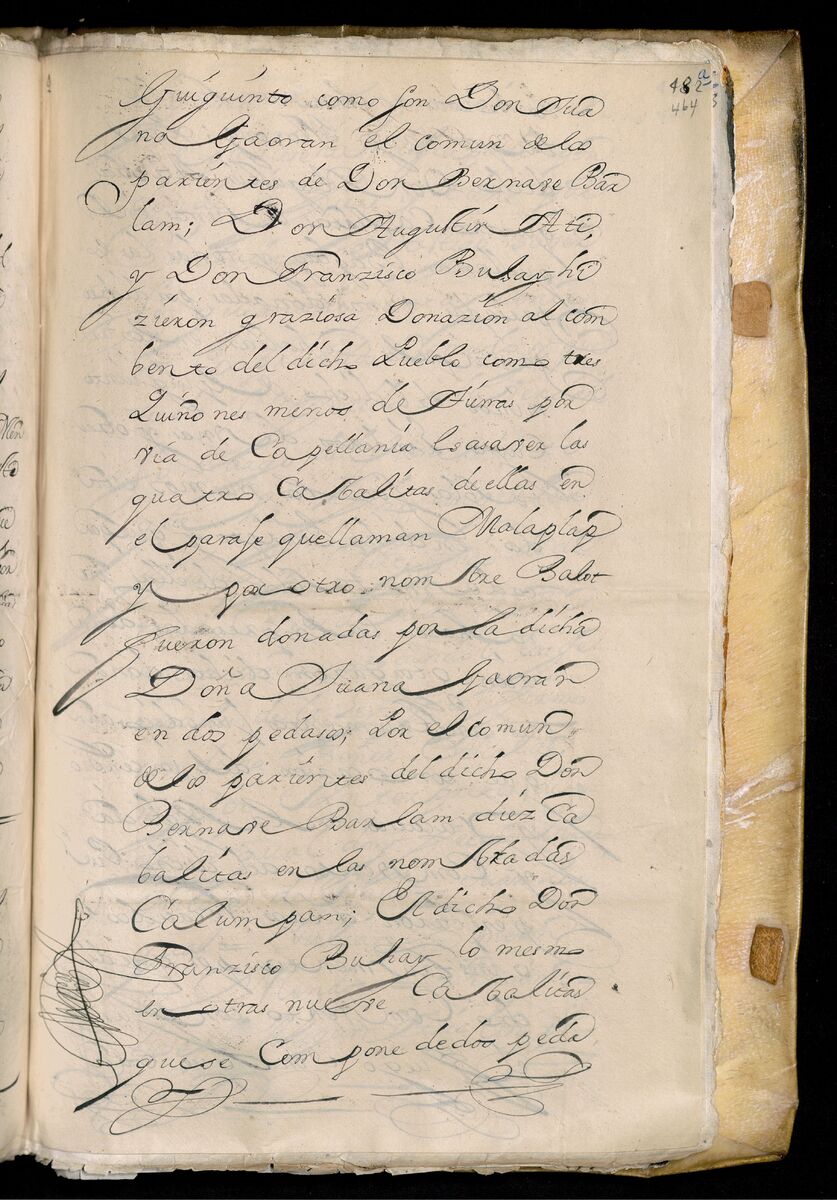 482
464
Guiguinto como son Don Jua
no Gaoran el comun de los
parientes de Don Bernave Bar
lam; Don Augustin Ati,
y Don Franzisco Buhay hi
zieron graziosa Donazion al com
bento del dicho Pueblo como tres
Quiñones menos de tierras por
via de Capellania es a saver las
quatro Cabalitas de ellas en
el paraje que llaman Malaplap
y por otro nombre Balot
fueron donadas por la dicha
Doña Juana Gaoran
en dos pedasos; Por el comun
de los parientes del dicho Don
Bernave Barlam diez Ca
balitas en las nombradas
Calumpan; El dicho Don
Franzisco Buhay lo mesmo
en otras nueve Cabalitas
que se compone de dos peda